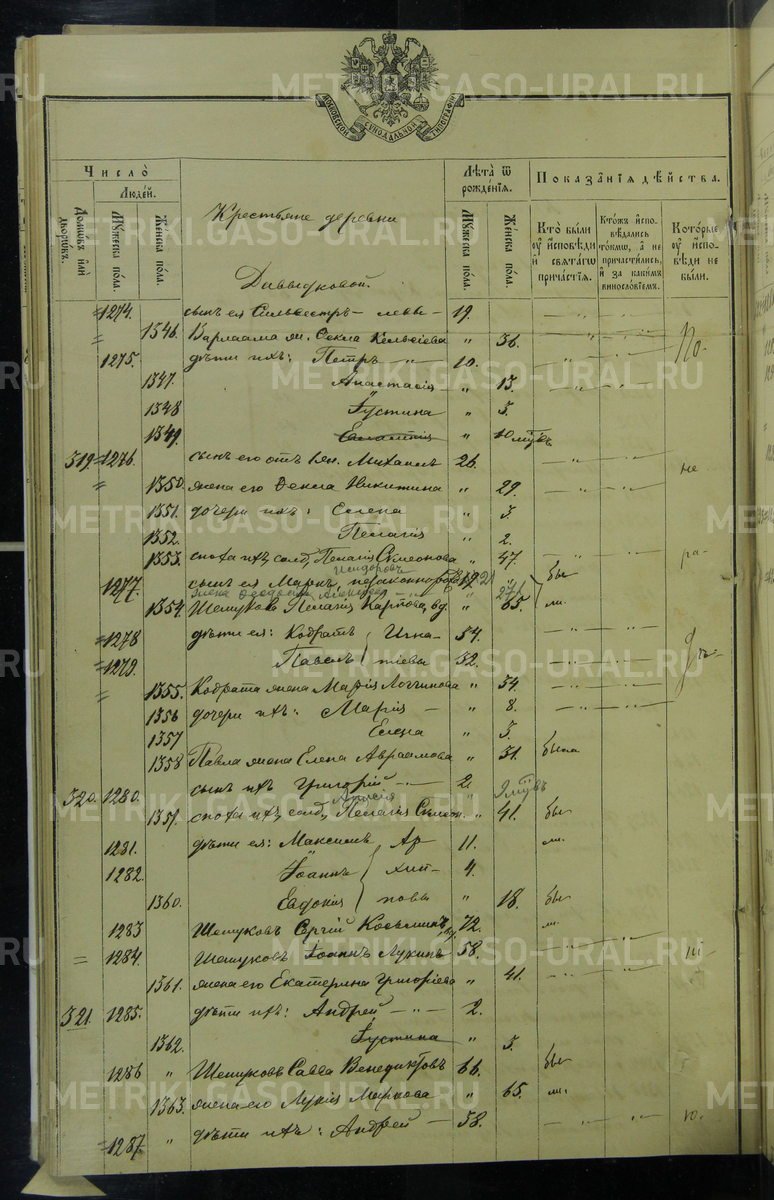 METRIKI.GASO-URAL.RU
МОСКОВСКОЙ СѴНОДАЛЬНОЙ ТИПОГРАФІИ
Число̀
Люде́й.
Домѡ́въ и҆лѝ дворѡ́въ.
Мꙋ́жеска по́ла.
Же́нска по́ла.
Крестьяне деревни
Давыдковой.
Лѣ́та ѿ рожде́нїѧ.
Мꙋ́жеска по́ла.
Же́нска по́ла.
Показа̂нїѧ дѣ́йства.
Кто̀ бы́ли ᲂу҆ и҆сповѣ́ди и҆ свѧта́гѡ причⷭ҇тїѧ.
Кто́жъ и҆спо­вѣдались то́кмѡ, а҆ не причасти́лись, и҆ за каки́мъ винослові́емъ.
Кото́рые ᲂу҆ и҆спо­вѣди не бы́ли.
1274. сынъ ея Сильвестръ — 19.
1346. Варлаама ж. Секла " 36.
1275. дѣти ихъ: Петръ — " — 10.
По.
1347. Анастасія " 13.
1348 Іустина " 3.
1349 " 10
319 1276. сынъ его отъ 1 жен. Михаилъ 26.
не
1350. жена его Ѳекла Никитина " 29.
1351. дочери ихъ: Елена " 3.
1352. Пелагія " 2.
1353. сноха ихъ, солд. Пелагія Симеонова " 47.
ра-
1277. сынъ ея Маркъ, незаконнорожд.
бы
1354. Шешукова Пелагія Карпова, вд. " 65.
ли.
1278 дѣти ея: Кодратъ Игна- 34.
1279. Павелъ тіевы 32.
1355. Кодрата жена Марія Логгинова " 34.
1356 дочери ихъ: Марія — " 8.
1357 Елена " 3.
1358 Павла жена Елена Авраамова " 31. была
320. 1280. сынъ ихъ Григорій — " — 2
1359. сноха ихъ, солд. Пелагія Симеон. " 41. бы
1281. дѣти ея: Максимъ Ар 11. ли.
1282. Іоаннъ хип- 4.
1360. Евдокія повы " 18. бы
1283 Шешуковъ Сергій Косьминъ, вд. 72. ли.
1284. Шешуковъ Іоаннъ Лукинъ 58.
1361. жена его Екатерина Григоріева " 41.
321. 1285. дѣти ихъ: Андрей — " — 2.
1362. Іустина " 5.
1286 " Шешуковъ Савва Венедиктовъ 66. бы
1363. жена его Лукія Маркова " 65. ли.
1287. " дѣти ихъ: Андрей — 38.
ю.